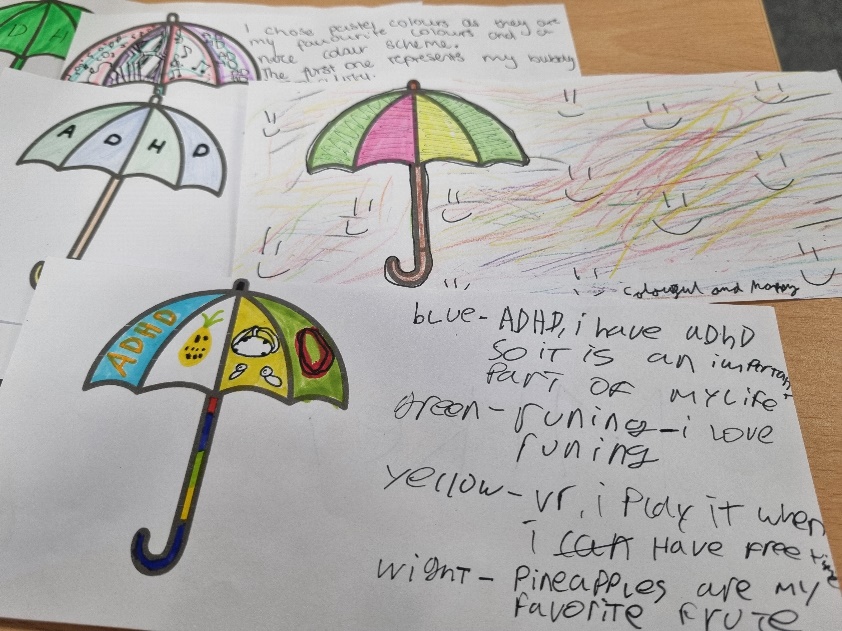 D H
I chose pastel colours as they are
my favourite colours and a
nice colour scheme.
The first one represents my
A D H D
Colourful and Happy
ADHD
blue- ADHD, i have aDhD
So it is an important
Part OF MY LiFe
green- runing-i love
runing
yellow- vr, i Play it when
i can Have Free time
wight- Pineapples are my
Favorite Frute